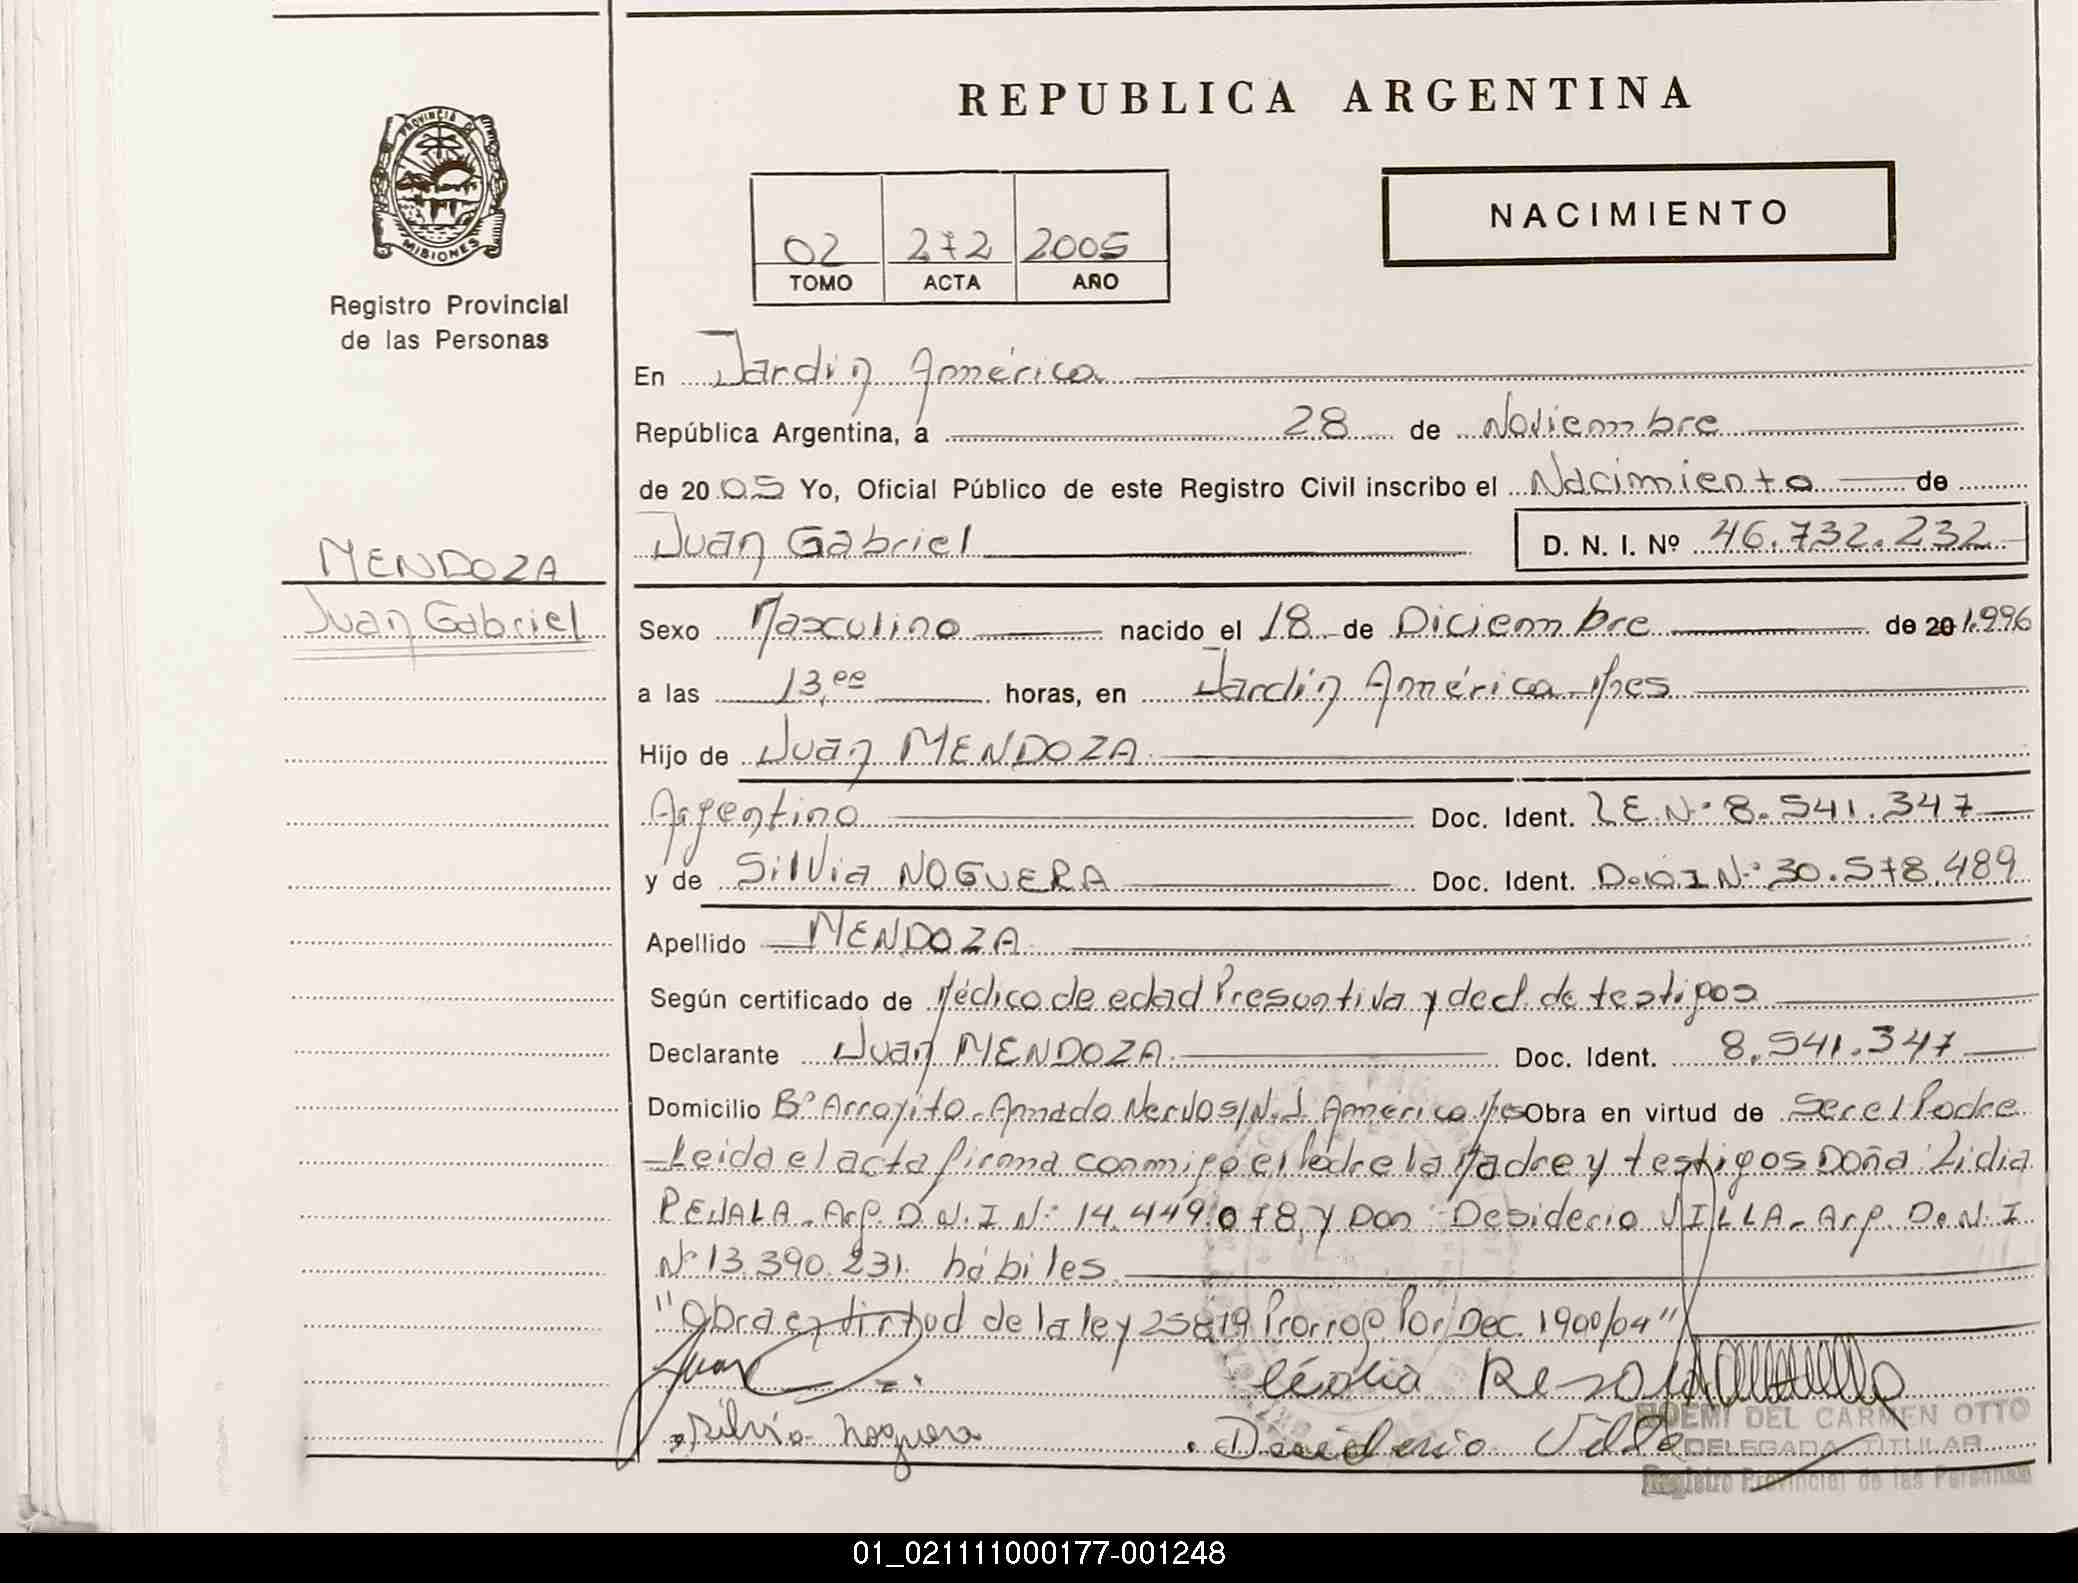 REPUBLICA ARGENTINA
PROVINCIA DE
MISIONES
Registro Provincial
de las Personas
NACIMIENTO
02 272 2005
TOMO ACTA AÑO
En Jardín América
República Argentina, a 28 de Noviembre
de 2005 Yo, Oficial Público de este Registro Civil inscribo el Nacimiento de
Juan Gabriel D. N. I. Nº 46.732.232
MENDOZA
Juan Gabriel
Sexo Masculino nacido el 18 de Diciembre de 20 1.996
a las 13,00 horas, en Jardín América Mnes
Hijo de Juan MENDOZA
Argentino Doc. Ident. L.E.Nº 8.541.347
y de Silvia NOGUERA Doc. Ident. D.N.I Nº 30.578.489
Apellido MENDOZA
Según certificado de Médico de edad Presuntiva y decl. de testigos
Declarante Juan MENDOZA Doc. Ident. 8.541.347
Domicilio Bº Arroyito-Amado Nervo S/N.J. América Mnes Obra en virtud de Ser el Padre
Leida el acta firma conmigo el Padre la Madre y testigos Doña Lidia
Arg. D.N.I Nº 14.449.078, y Don Desiderio VILLA-Arg. D.N.I.
Nº 13.390.231 hábiles
"Obra en virtud de la ley 25819 Prorrog. Por Dec. 1900/04"
Juan
Silvia Noguera
Desiderio Villa
NOEMI DEL CARMEN OTTO
DELEGADA TITULAR
Registro Provincial de las Personas
01_021111000177-001248